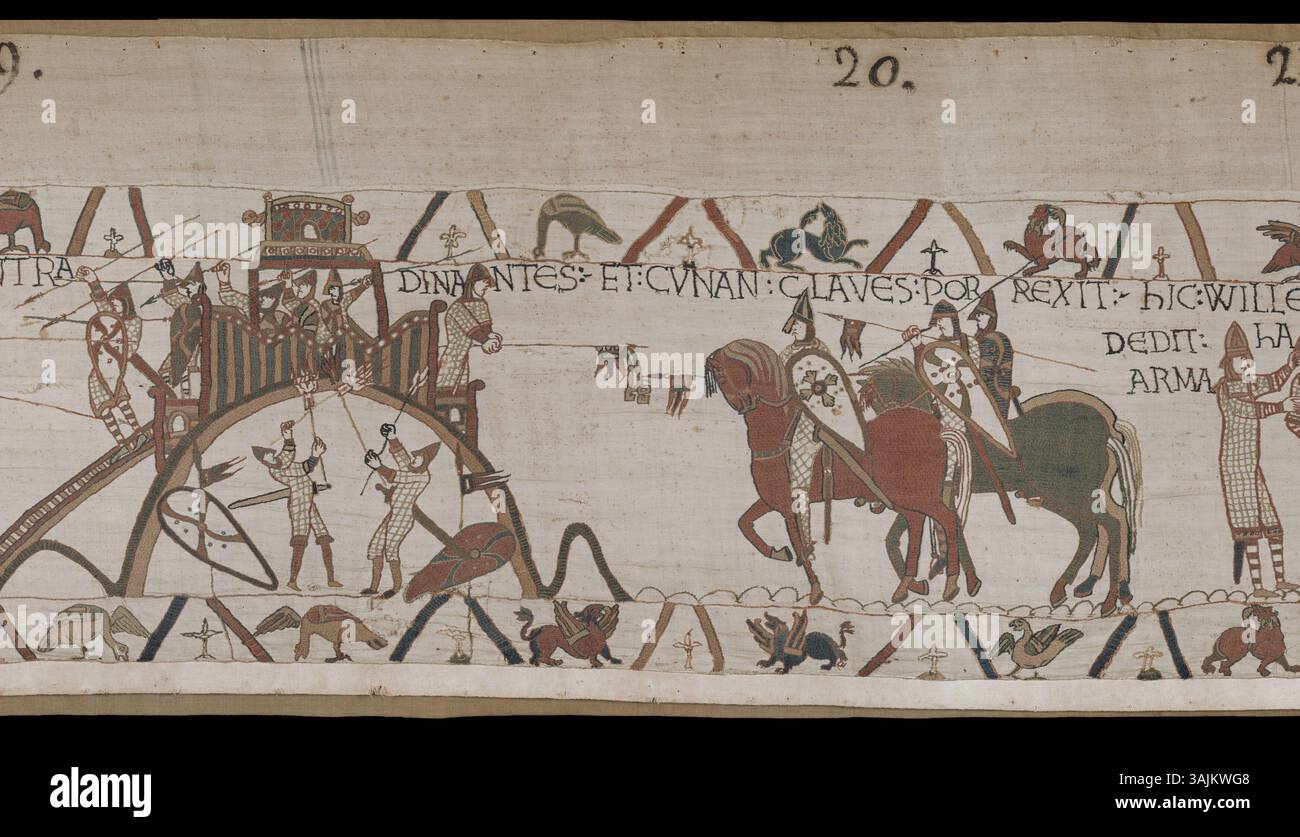 9. 20. 2
NTRA DINANTES: ET: CVNAN: CLAVES: POR REXIT:- hIC: WILLE
DEDIT: hA
ARMA
a a a a a
a a a
a a a a a
a a a
alamy
Image ID: 3AJKWG8
www.alamy.com